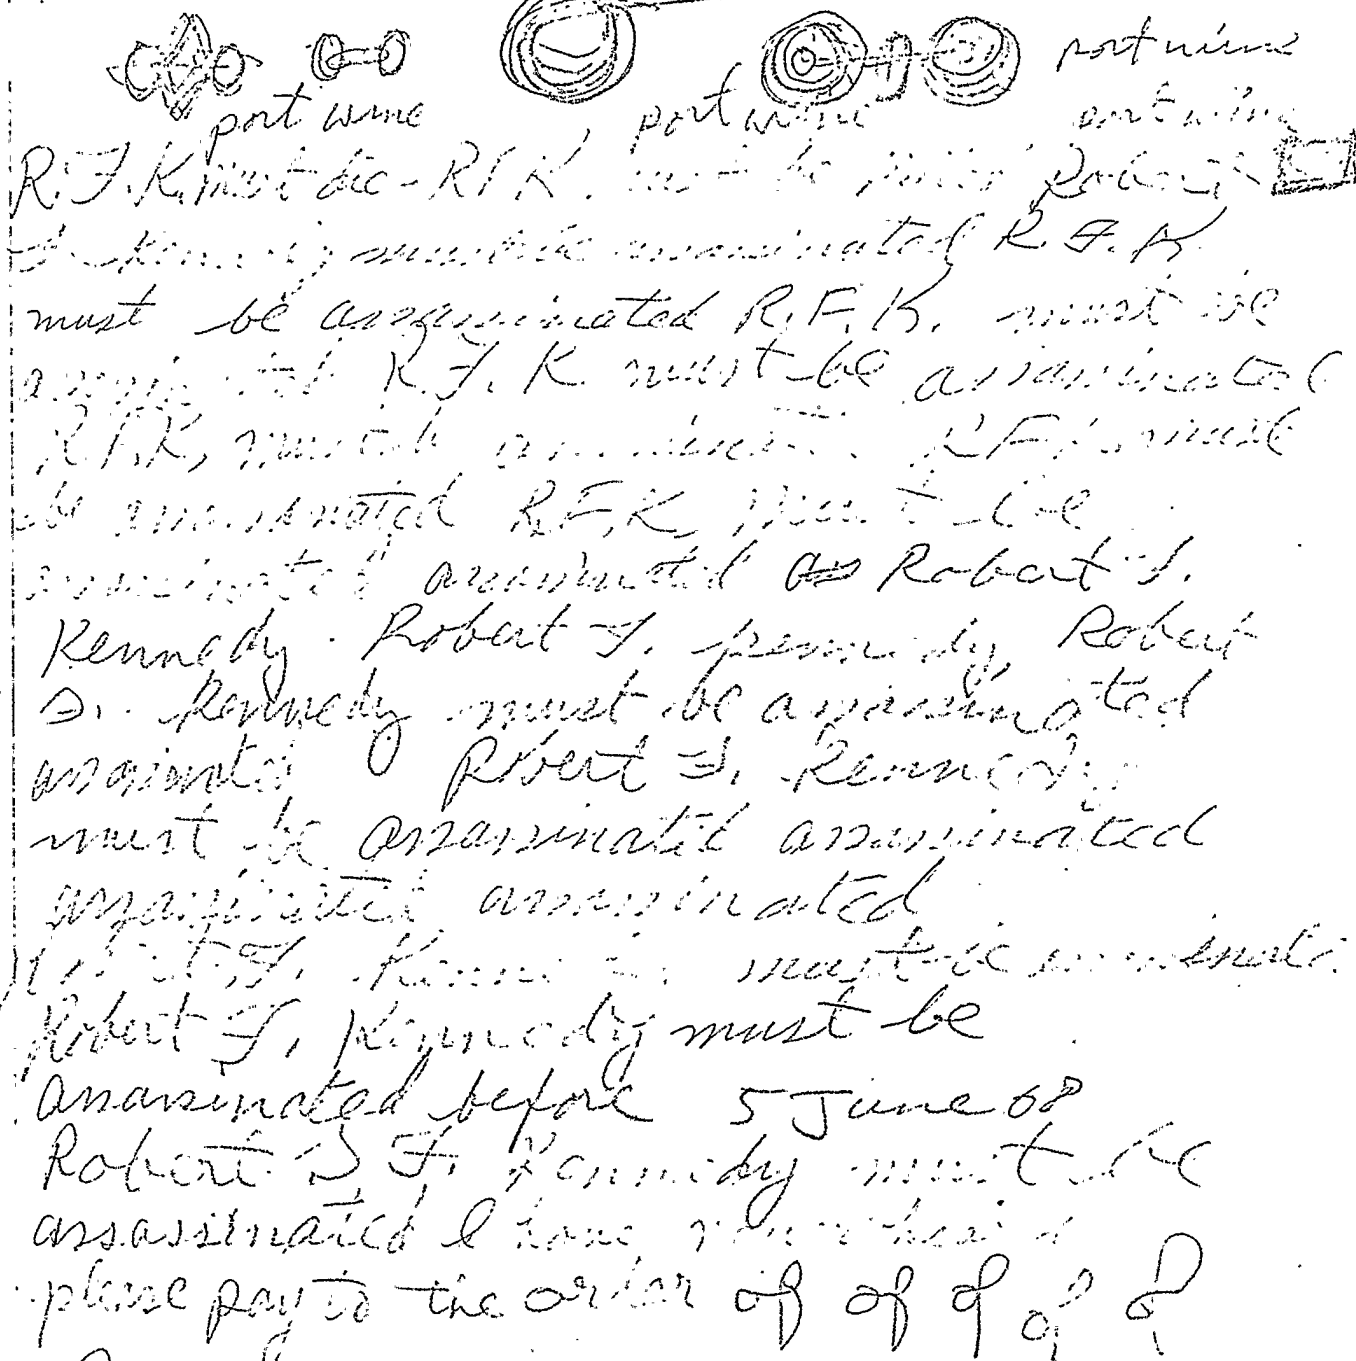 port wine
port wine port wine port wine
R.F.K. must die - RFK must be Robert
F. Kennedy must be assassinated R.F.K.
must be assassinated R.F.K. must be
R.F.K. must be assassinated
R.F.K. must be RFK must
be assassinated R.F.K. must be
assassinated assassinated as Robert F.
Kennedy Robert F. Kennedy, Robert
F. Kennedy must be assassinated
assainated Robert F. Kennedy
must be assassinated assassinated
assassinated assassinated
Robert F. Kennedy must be
Robert F. Kennedy must be
assassinated before 5 June 68
Robert F. Kennedy must be
assassinated I have
please pay to the order of of of of of